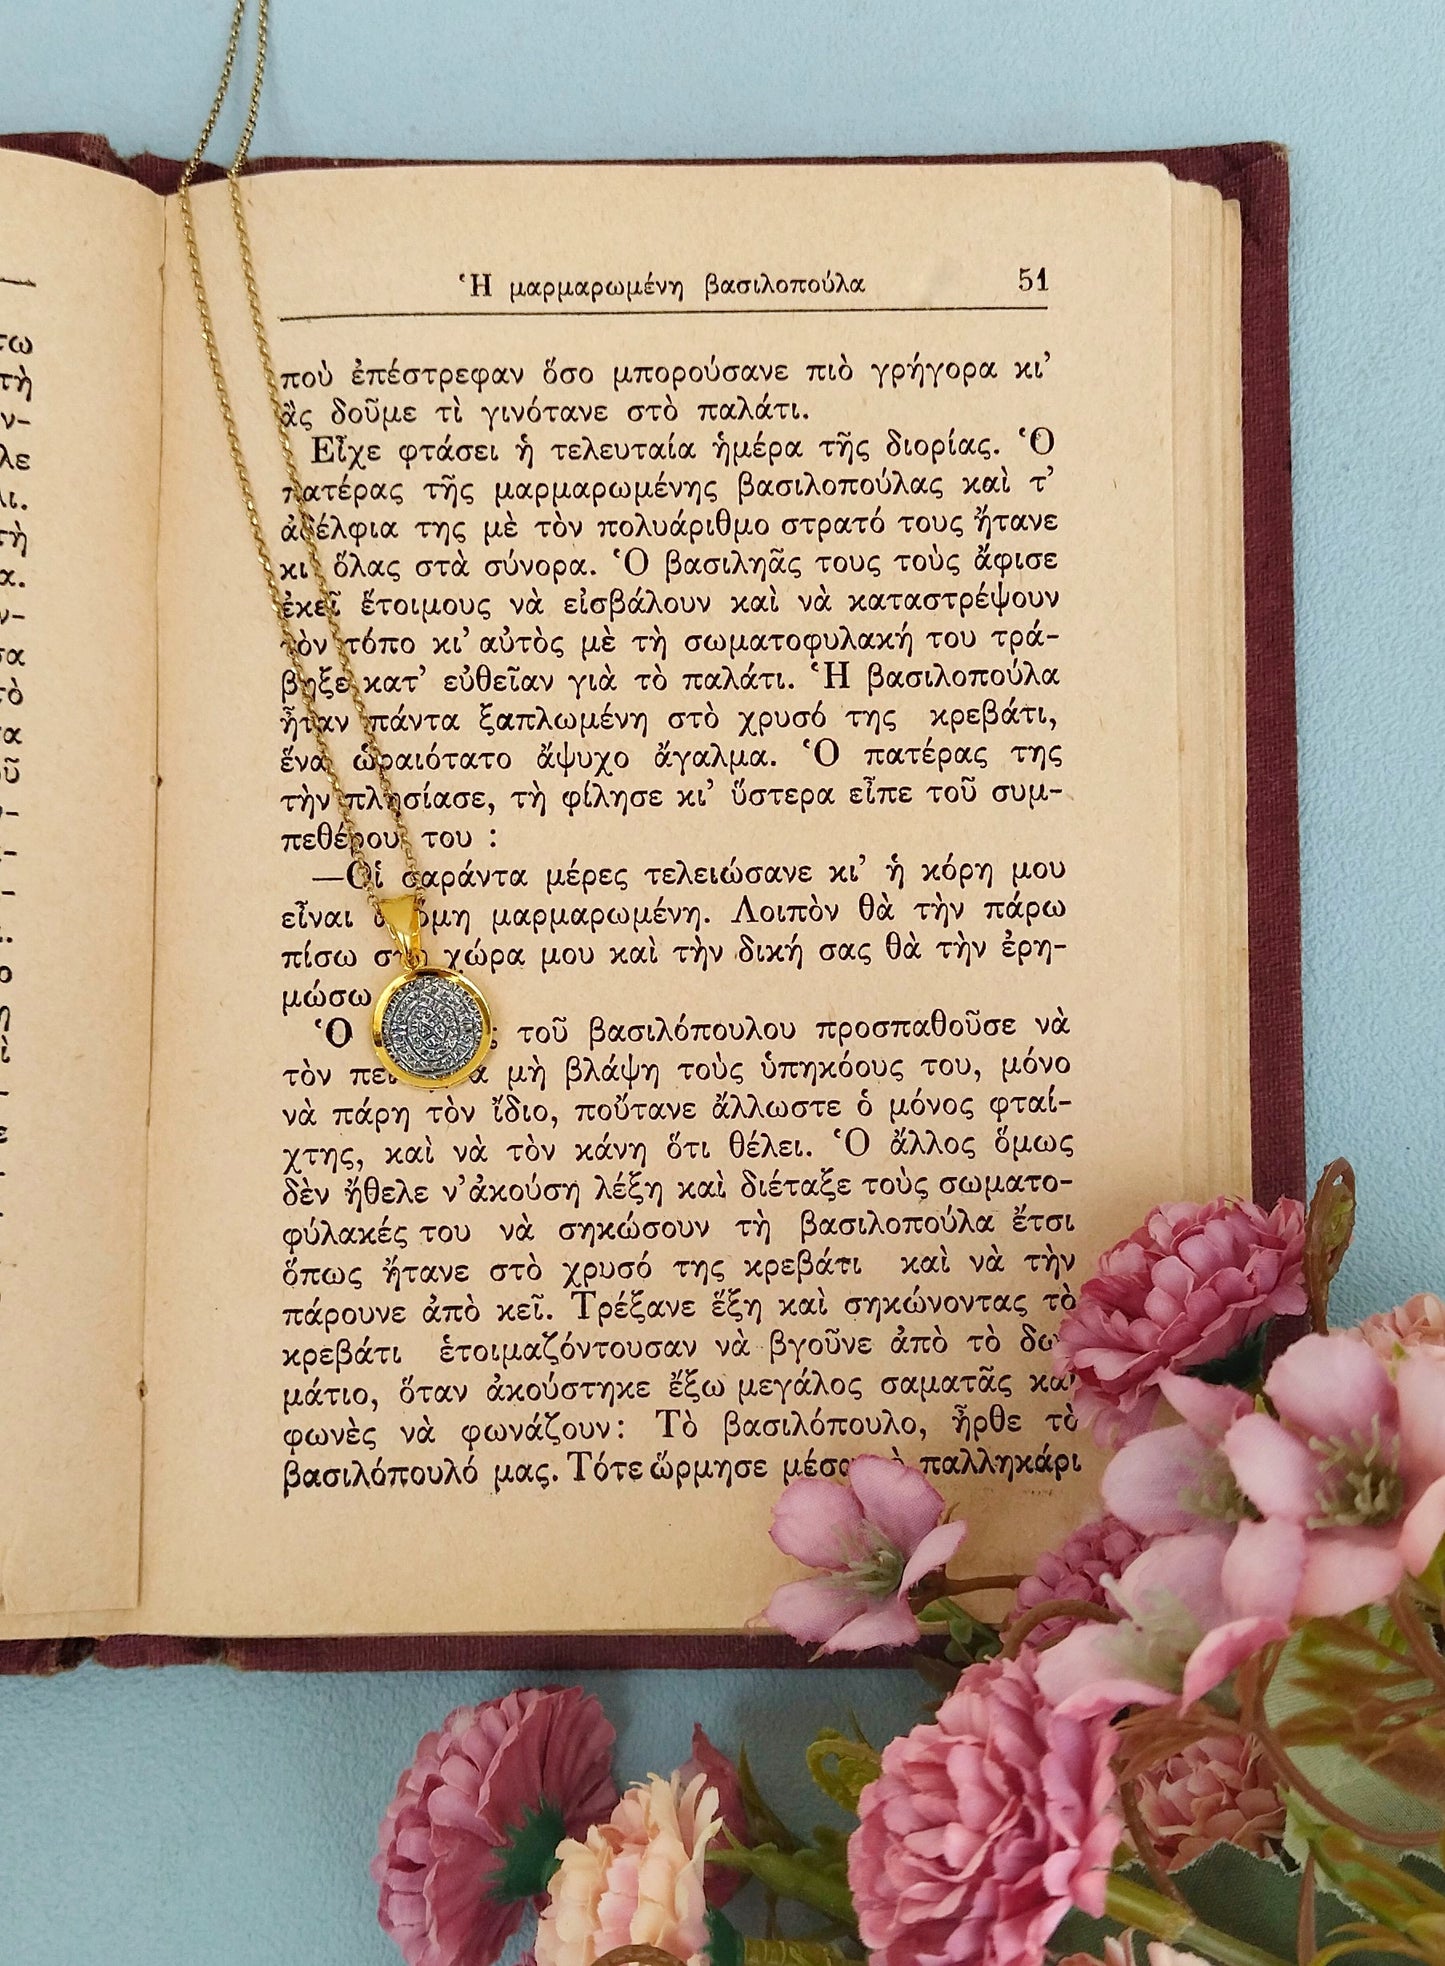 Ἡ μαρμαρωμένη βασιλοπούλα 51
ποὺ ἐπέστρεφαν ὅσο μπορούσανε πιὸ γρήγορα κι’
ἂς δοῦμε τὶ γινότανε στὸ παλάτι.
Εἶχε φτάσει ἡ τελευταία ἡμέρα τῆς διορίας. Ὁ
πατέρας τῆς μαρμαρωμένης βασιλοπούλας καὶ τ’
ἀδέλφια της μὲ τὸν πολυάριθμο στρατό τους ἤτανε
κι’ ὅλας στὰ σύνορα. Ὁ βασιληᾶς τους τοὺς ἄφισε
ἐκεῖ ἕτοιμους νὰ εἰσβάλουν καὶ νὰ καταστρέψουν
τὸν τόπο κι’ αὐτὸς μὲ τὴ σωματοφυλακή του τρά-
βηξε κατ’ εὐθεῖαν γιὰ τὸ παλάτι. Ἡ βασιλοπούλα
ἦταν πάντα ξαπλωμένη στὸ χρυσό της κρεβάτι,
ἕνα ὡραιότατο ἄψυχο ἄγαλμα. Ὁ πατέρας της
τὴν πλησίασε, τὴ φίλησε κι’ ὕστερα εἶπε τοῦ συμ-
πεθέρου του :
—Οἱ σαράντα μέρες τελειώσανε κι’ ἡ κόρη μου
εἶναι μαρμαρωμένη. Λοιπὸν θὰ τὴν πάρω
πίσω χώρα μου καὶ τὴν δική σας θὰ τὴν ἐρη-
μώσω
Ὁ τοῦ βασιλόπουλου προσπαθοῦσε νὰ
τὸν μὴ βλάψη τοὺς ὑπηκόους του, μόνο
νὰ πάρη τὸν ἴδιο, ποὔτανε ἄλλωστε ὁ μόνος φταί-
χτης, καὶ νὰ τὸν κάνη ὅτι θέλει. Ὁ ἄλλος ὅμως
δὲν ἤθελε ν’ἀκούση λέξη καὶ διέταξε τοὺς σωματο-
φύλακές του νὰ σηκώσουν τὴ βασιλοπούλα ἔτσι
ὅπως ἤτανε στὸ χρυσό της κρεβάτι καὶ νὰ τὴν
πάρουνε ἀπὸ κεῖ. Τρέξανε ἕξη καὶ σηκώνοντας τὸ
κρεβάτι ἑτοιμαζόντουσαν νὰ βγοῦνε ἀπὸ τὸ δω-
μάτιο, ὅταν ἀκούστηκε ἔξω μεγάλος σαματᾶς καὶ
φωνὲς νὰ φωνάζουν: Τὸ βασιλόπουλο, ἦρθε τὸ
βασιλόπουλό μας. Τότε ὥρμησε μέσα παλληκάρι